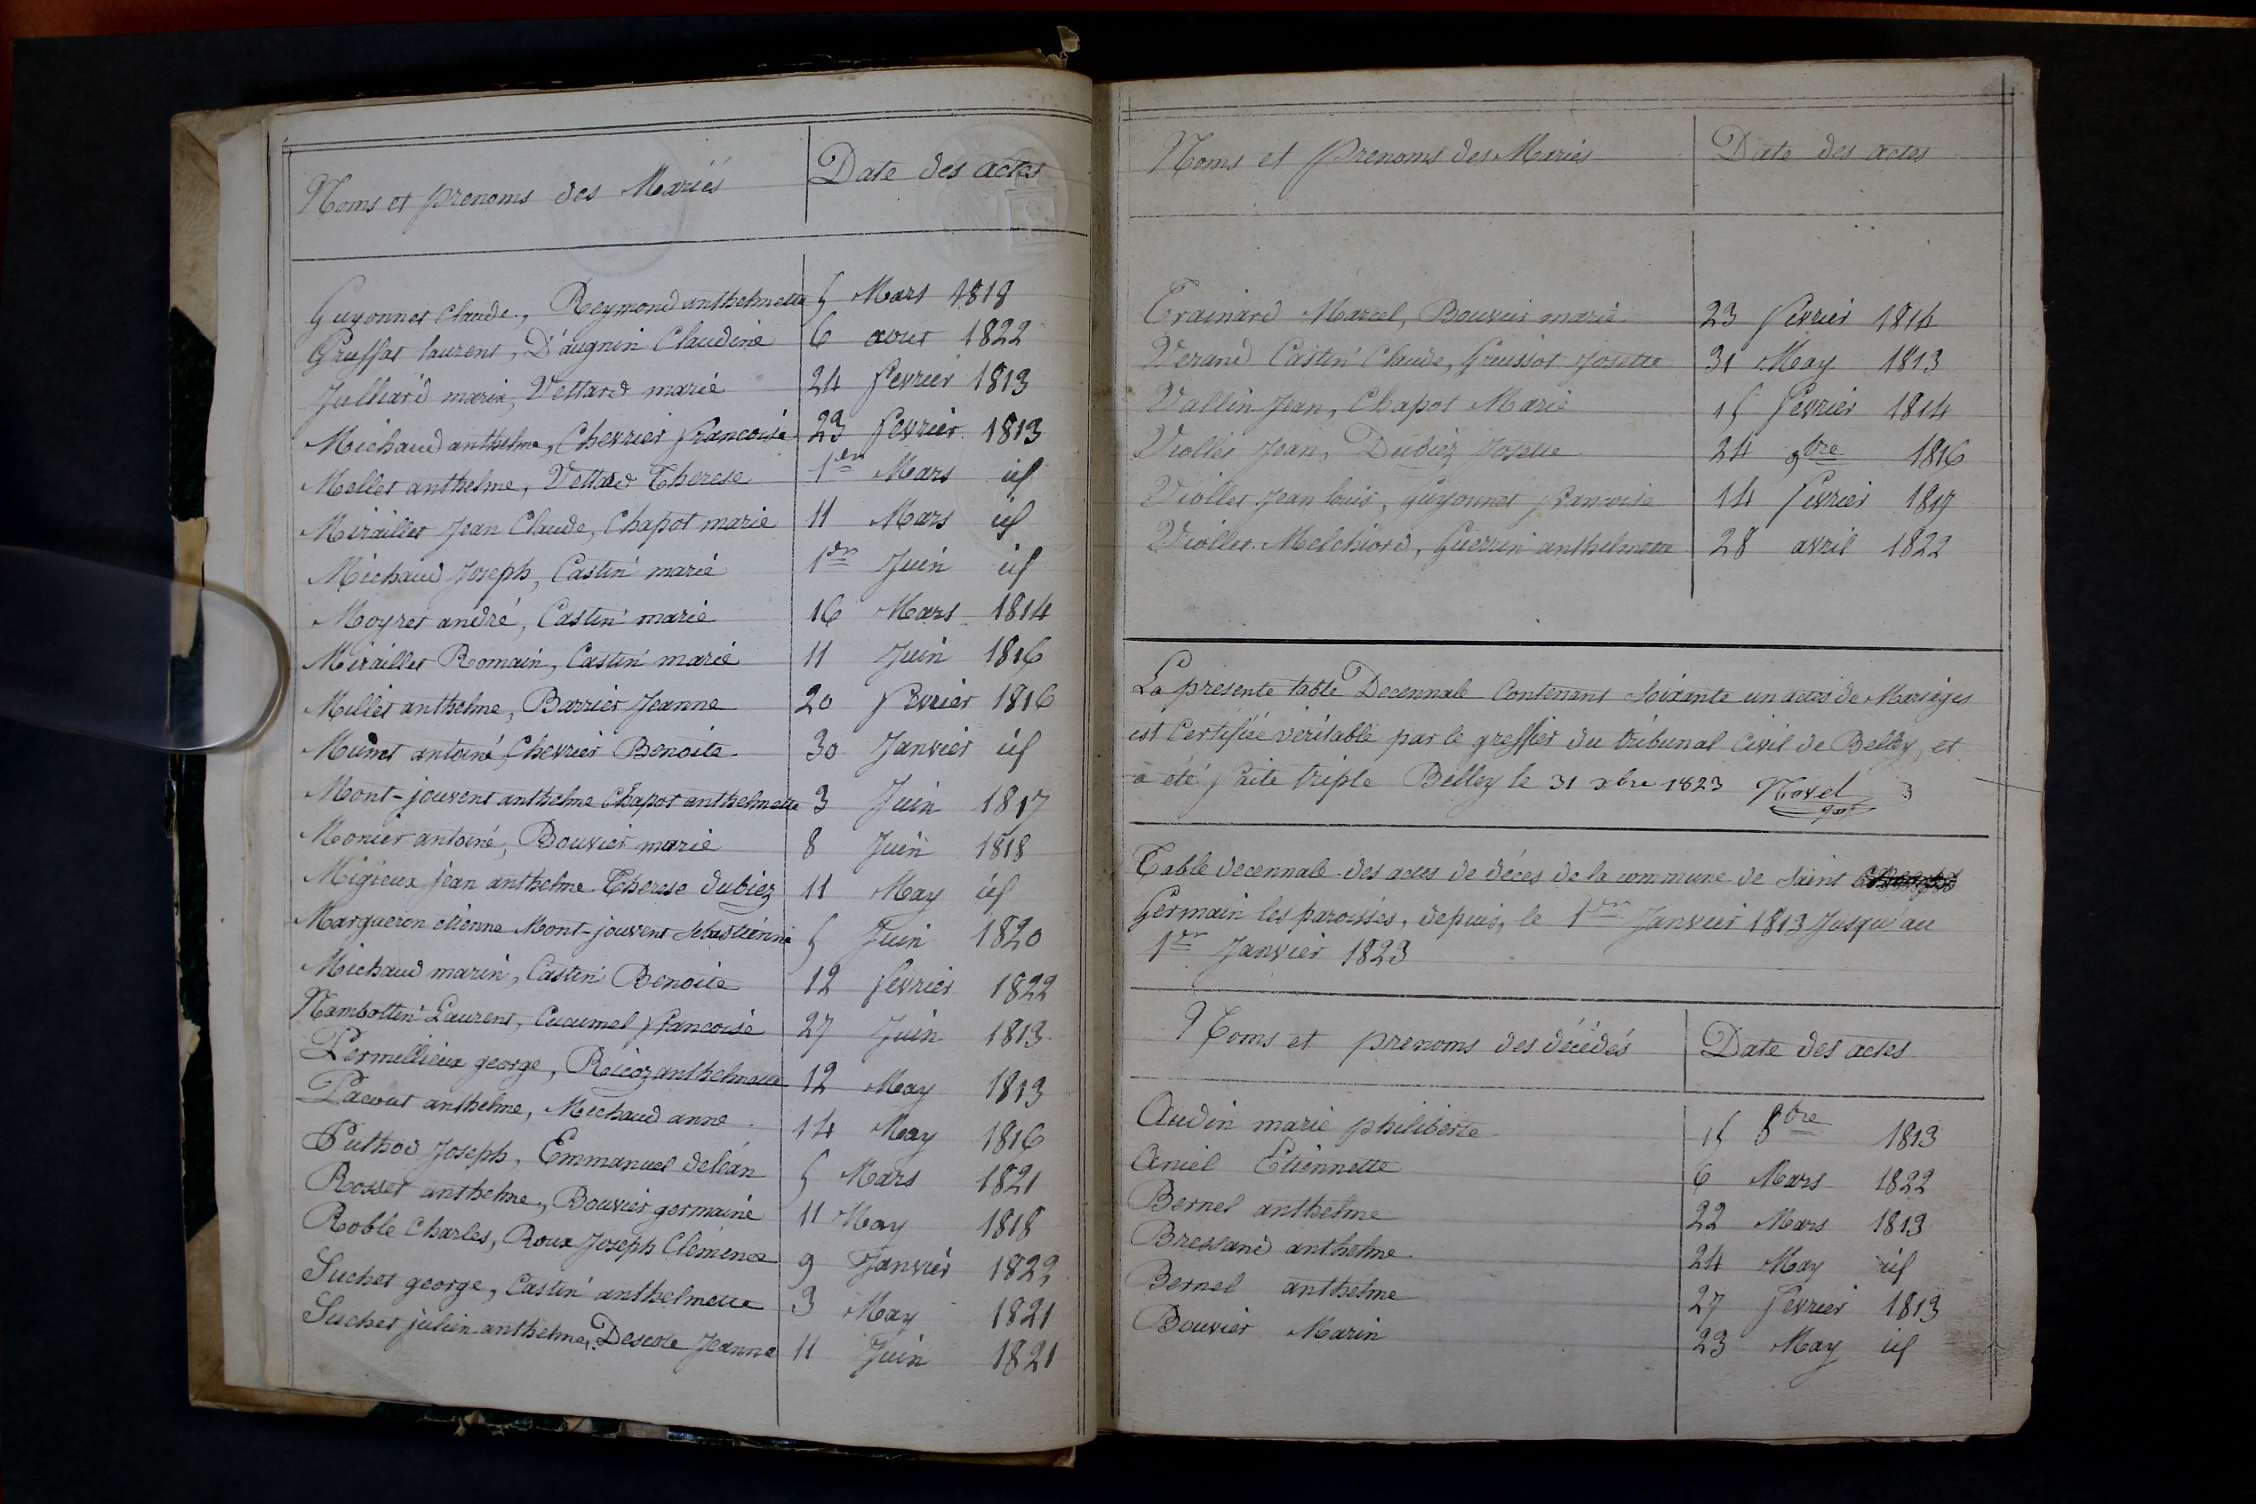 Noms et prenoms des Mariés Date des actes
Guyonnet Claude., Reymond anthelmette 5 Mars 1818
Gruffat laurent, D'augnin Claudine 6 aout 1822
Julliard marin, Vettard marie 24 fevrier 1813
Michaud anthelme, Chevrier francoise 23 fevrier 1813
Mellet anthelme, Vettard Therese 1er Mars id
Mirailler Jean Claude, Chapot marie 11 Mars id
Michaud Joseph, Castin marie 1er Juin id
Moyret andré, Castin marie 16 Mars 1814
Mirailler Romain, Castin marie 11 Juin 1816
Millet anthelme, Barrier Jeanne 20 fevrier 1816
Munet antoine, Chevrier Benoite 30 Janvier id
Mont-jouvent anthelme Chapot anthelmette 3 Juin 1817
Monier antoine, Bouvier marie 8 Juin 1818
Migieux jean anthelme Therese dubiez 11 May id
Marqueron etienne Mont-jouvent Sebastienne 5 Juin 1820
Michaud marin, Castin Benoite 12 fevrier 1822
Nambottin Laurent, Cucumel francoise 27 Juin 1813
Permillieux george, Récoz anthelmette 12 May 1813
Pacout anthelme, Michaud anne 14 May 1816
Puthod Joseph, Emmanuel deléan 5 Mars 1821
Rosset anthelme, Bouvier germaine 11 May 1818
Roble Charles, Roux Joseph Clemence 9 Janvier 1822
Suchet george, Castin anthelmette 3 May 1821
Suchet julien anthelme, Descote Jeanne 11 Juin 1821
Noms et prenoms des Mariés Date des actes
Trainard Marcel, Bouvier marie 23 fevrier 1814
Verand Castin Claude, Gruissot Josette 31 May 1813
Vallin Jean, Chapot Marie 15 fevrier 1814
Viollet Jean, Dubiez Josette 24 9bre 1816
Viollet Jean louis, Guyonnet francoise 14 fevrier 1817
Viollet Melchiord, Guerrin anthelmette 28 avril 1822
La presente table Decennale Contenant Soixante un actes de Mariages
est Certifiée véritable par le greffier du tribunal Civil de Belley, et
a été faite triple Belley le 31 xbre 1823 Novel
Table decennale des actes de déces de la commune de Saint
Germain les paroisses, depuis, le 1er Janvier 1813 Jusqu'au
1er Janvier 1823
Noms et prenoms des décédés Date des actes
Audin marie philiberte 15 8bre 1813
Aniel Etiennette 6 Mars 1822
Bernel anthelme 22 Mars 1813
Bressand anthelme 24 May id
Bernel anthelme 27 fevrier 1813
Bouvier Marin 23 May id